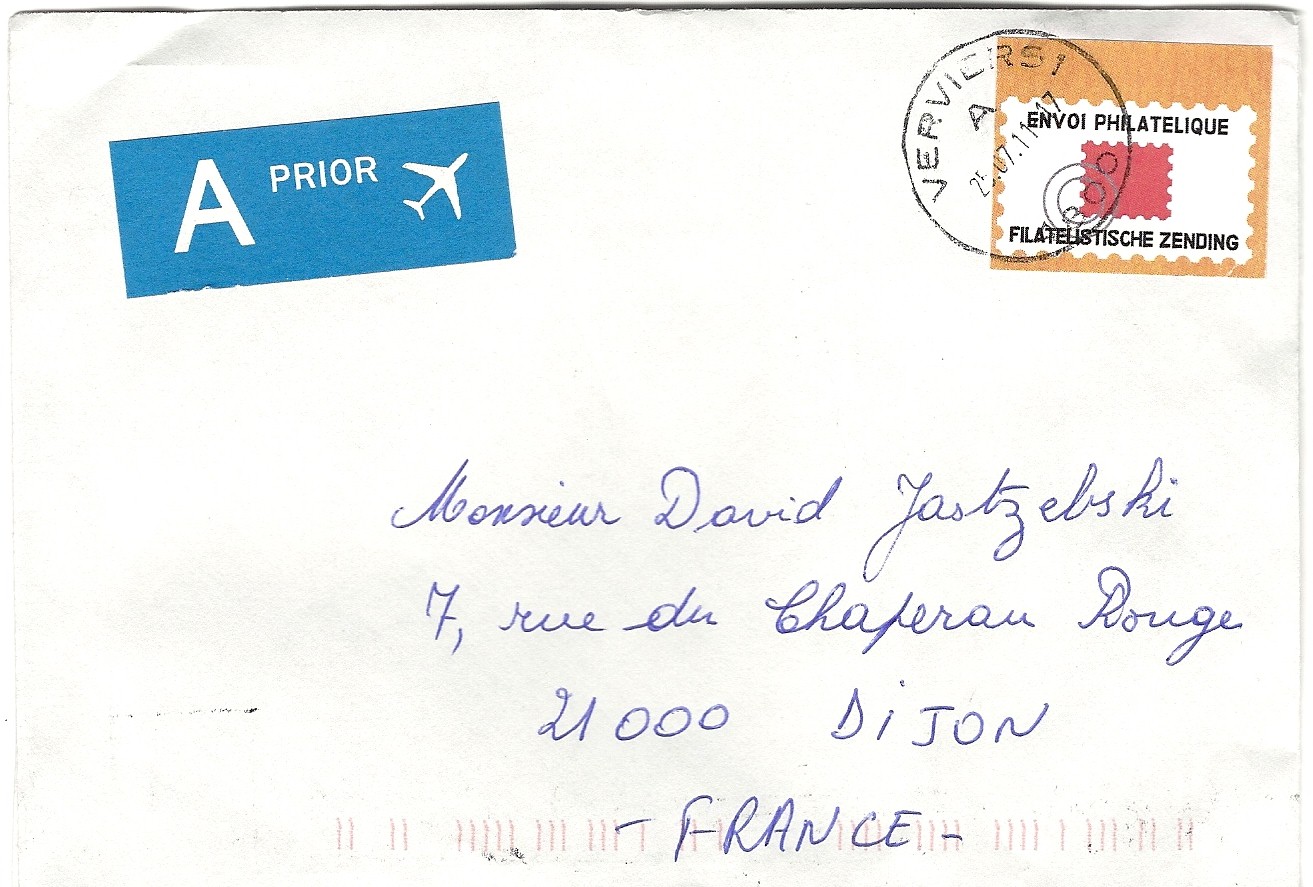 A PRIOR
VERVIERS 1
A
ENVOI PHILATELIQUE
FILATELISTISCHE ZENDING
Monsieur David Jastzebski
7, rue du Chaperau Rouge
21000 DIJON
- FRANCE -